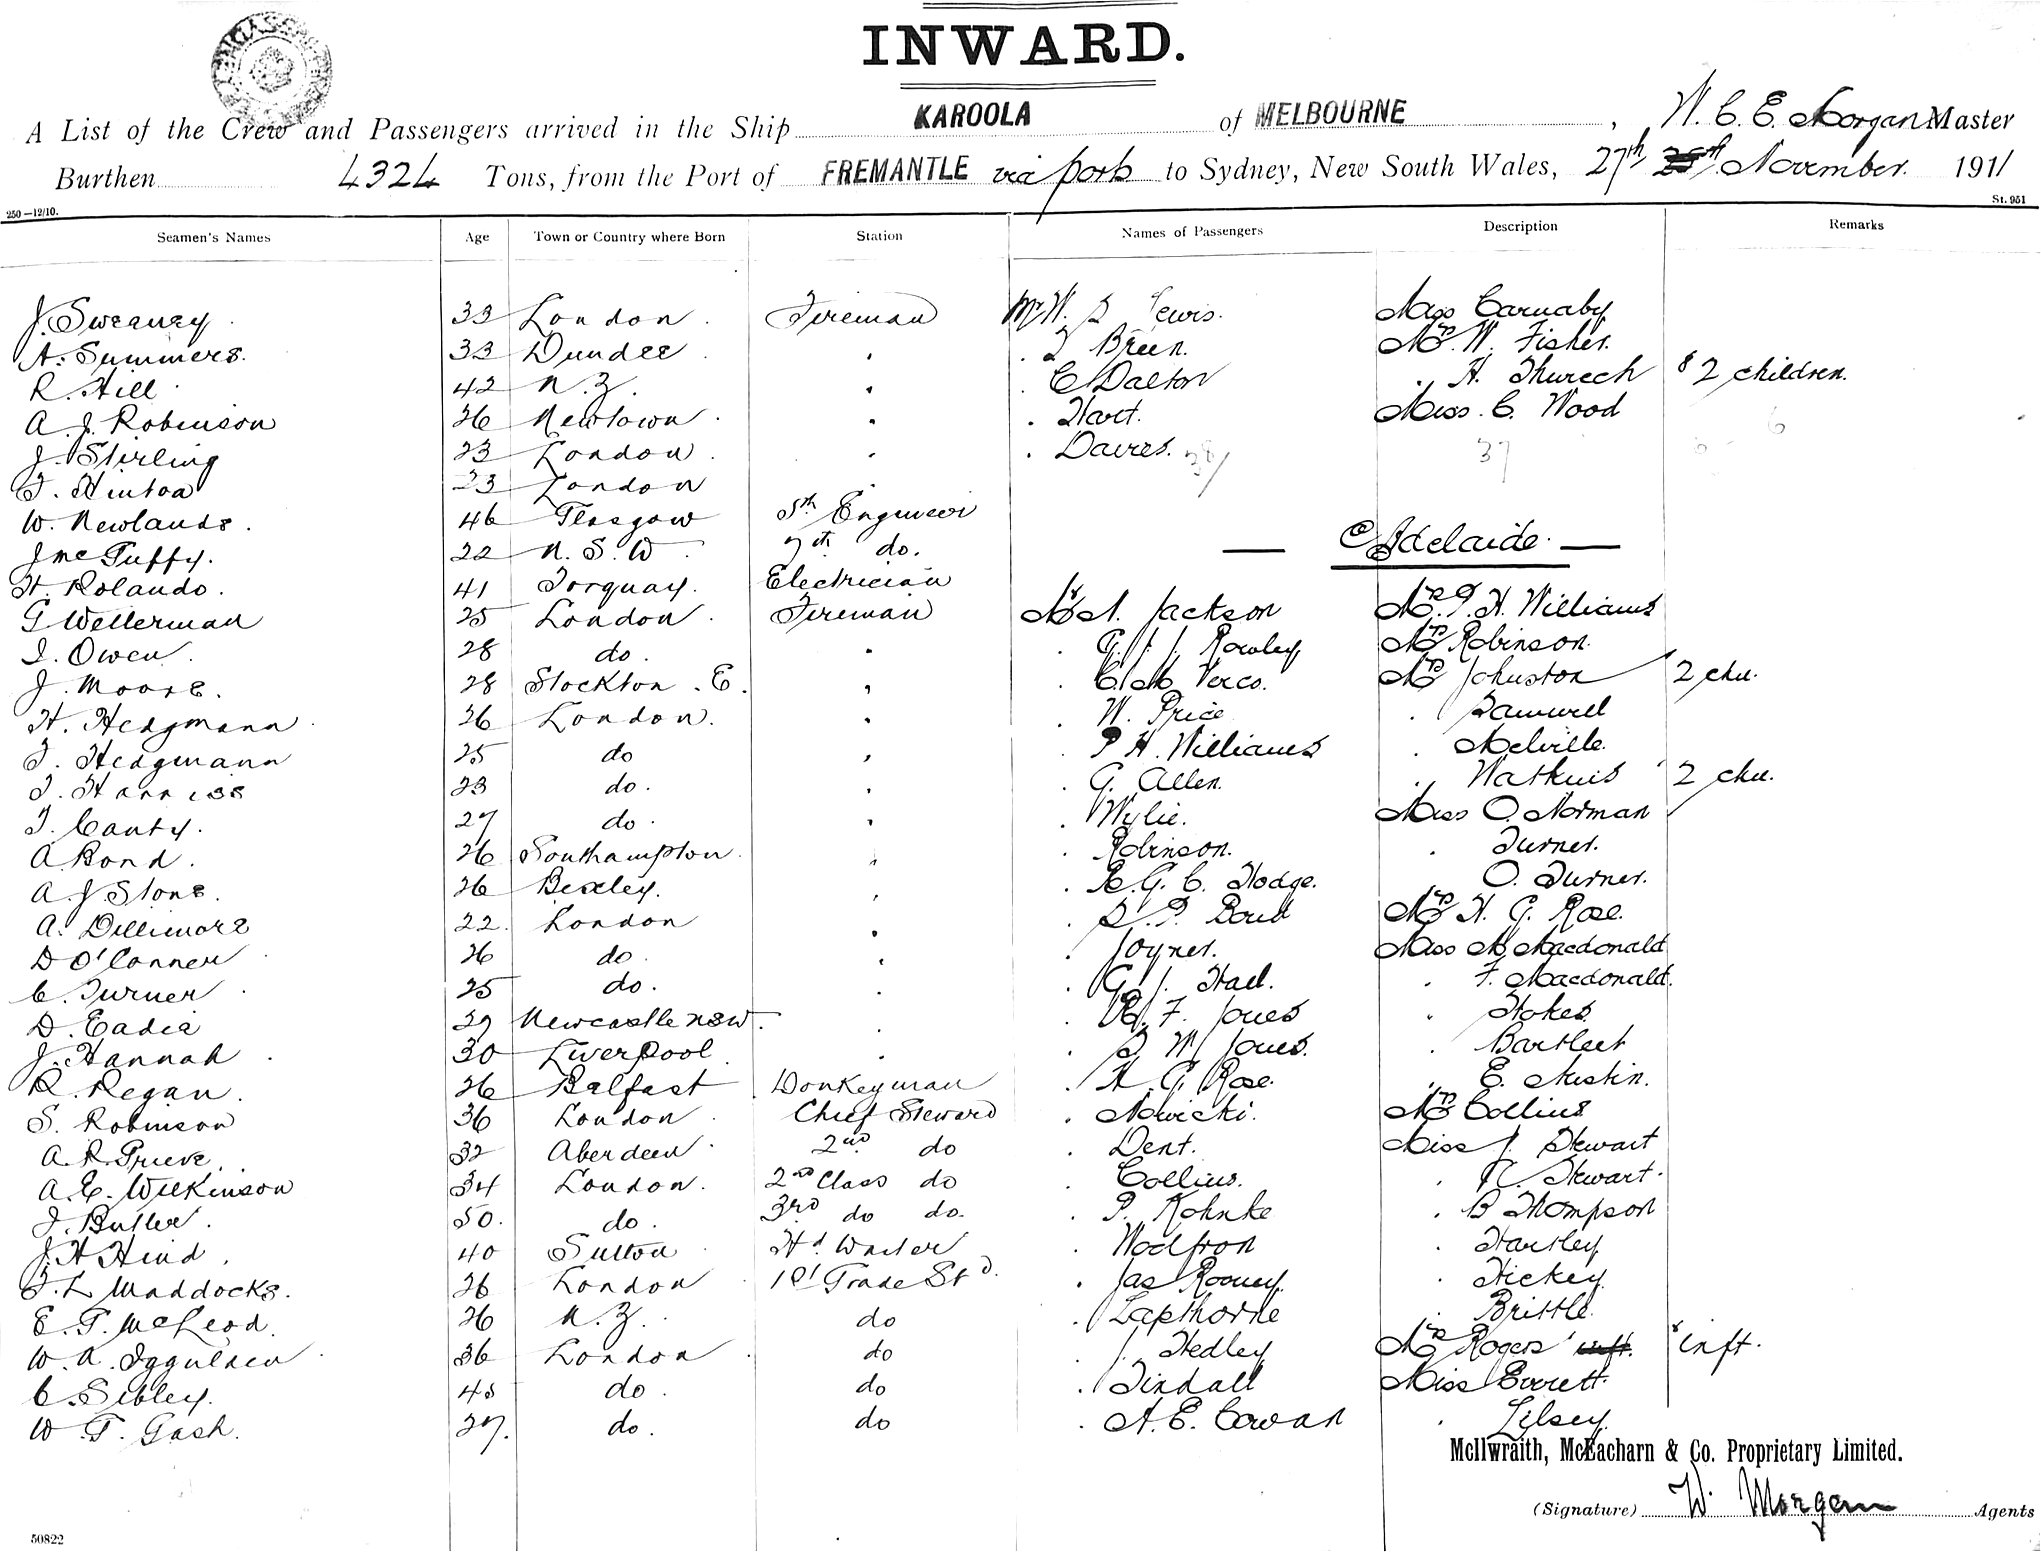 INWARD.
A List of the Crew and Passengers arrived in the Ship KAROOLA of MELBOURNE, W. C. E. Morgan Master
Burthen 4324 Tons, from the Port of FREMANTLE via ports to Sydney, New South Wales, 27th November. 1911
250—12/10. St. 951
Seamen's Names Age Town or Country where Born Station Names of Passengers Description Remarks
J. Sweaney 33 London. Fireman Mr W. S Lewis. Miss Carnaby
A. Summers. 33 Dundee " . J Breen. Mrs W. Fisher.
R. Hill 42 N.Z. " . C Dalton . H. Thurech & 2 children.
A. J. Robinson 26 Newtown " . Hart. Miss. C. Wood
J. Stirling 23 London " . Davies. 38/ 37 6
T. Hinton 23 London
W. Newlands. 46 Glasgow 5th Engineer
J McGuffy. 22 N. S. W 7th do. — Adelaide. —
H. Rolando. 41 Torquay. Electrician
G Wellerman 25 London Fireman Mr A. Jackson Mrs P. H. Williams
J. Owen 28 do. " . G. J. J. Rowley Mrs Robinson.
J. Moore. 28 Stockton. E. " . C. M. Verco. Mrs Johnston 2 chn.
H. Hedgmann 26 London. " . W. Price . Bamwell
J. Hedgmann 25 do " . P H. Williams . Melville.
J. Harriss 23 do. " . G. Allen. . Watkins 2 chn.
J. Canty. 27 do. " . Wylie. Miss O. Norman
A. Bond. 26 Southampton " . Robinson. . Turner.
A. J Stone. 26 Bexley. " . R. G. C. Hodge. O. Turner.
A. Dillimore 22. London " . S. P. Bond Mrs H. G. Rose.
D O'Conner 26 do. " . Joyner. Miss M. Macdonald
C. Turner 25 do. " . G. J. Hall. . F. Macdonald.
D. Eadie 39 Newcastle NSW. " . R. F. Jones . Stokes
J. Hannah 30 Liverpool " . S. W. Jones. . Bartlett
R. Regan. 26 Belfast Donkeyman . H. G. Rose. . E. Austin.
S. Robinson 36 London Chief Steward . Nowicki. Mrs Collins
A. R. Grieve. 32 Aberdeen 2nd do . Dent. Miss J. Stewart
A. E. Wilkinson 34 London. 2nd Class do . Collins. . R. Stewart.
J. Butler. 50. do. 3rd do do. . P. Kohnke . B Thompson
J. H Hind. 40 Sutton Hd Waiter . Woolfron . Hartley
T. L Maddocks. 26 London 1st Grade Std. . Jas Rooney. . Hickey
E. G. McLeod. 26 N. Z. do . Lapthorne . Bristle.
W. A. Iggulden 36 London do . J. Hedley Mrs Rogers inft. & inft.
C. Sibley. 45 do. do . Tindall Miss Everett.
W. G. Gash. 27. do. do . A. E. Cowan . Lilsey
McIlwraith, McEacharn & Co. Proprietary Limited.
(Signature) W. Morgan Agents
50822